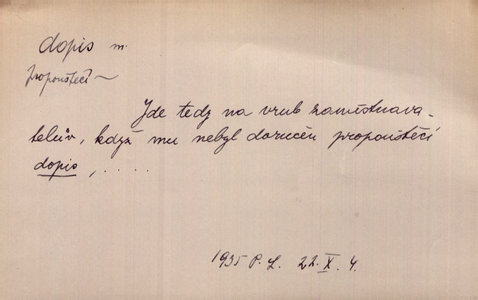 dopis m.
propouštěcí ~
Jde tedy na vrub zaměstnava-
telův, když mu nebyl doručen propouštěcí
dopis, . . . . .
1935 P. L. 22. X. 4.